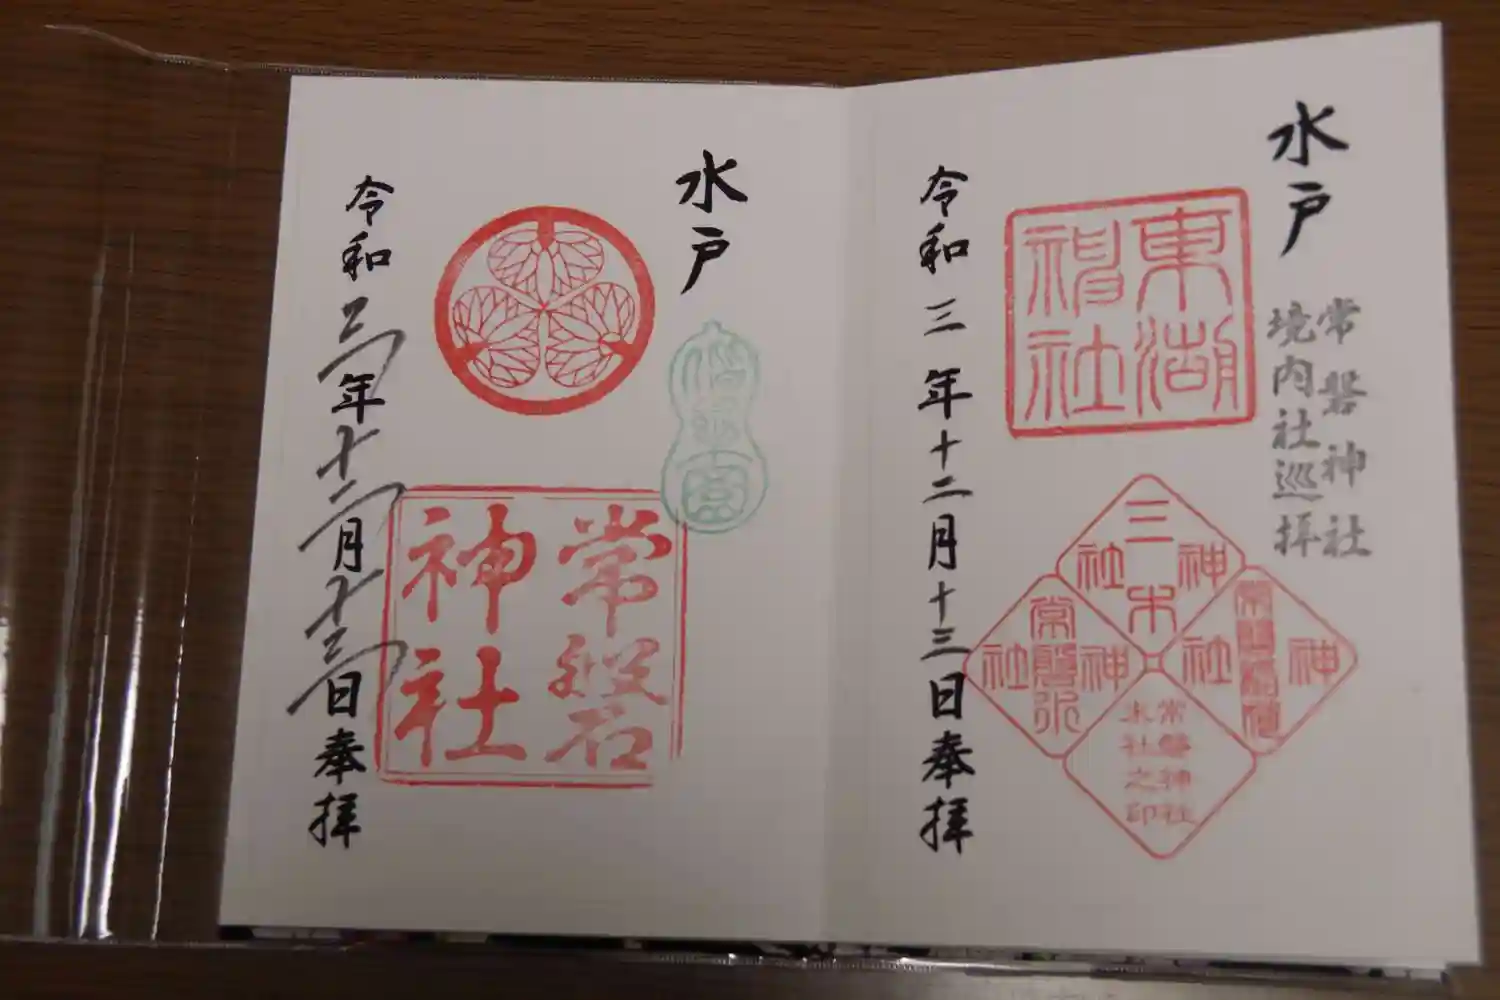 水戸
常磐神社
境内社巡拝
東湖
神社
三木
神社
常磐稲荷
神社
常磐
神社
常磐神社
末社之印
令和三年十二月十三日奉拝
水戸
偕楽園
常磐
神社
令和三年十二月十三日奉拝